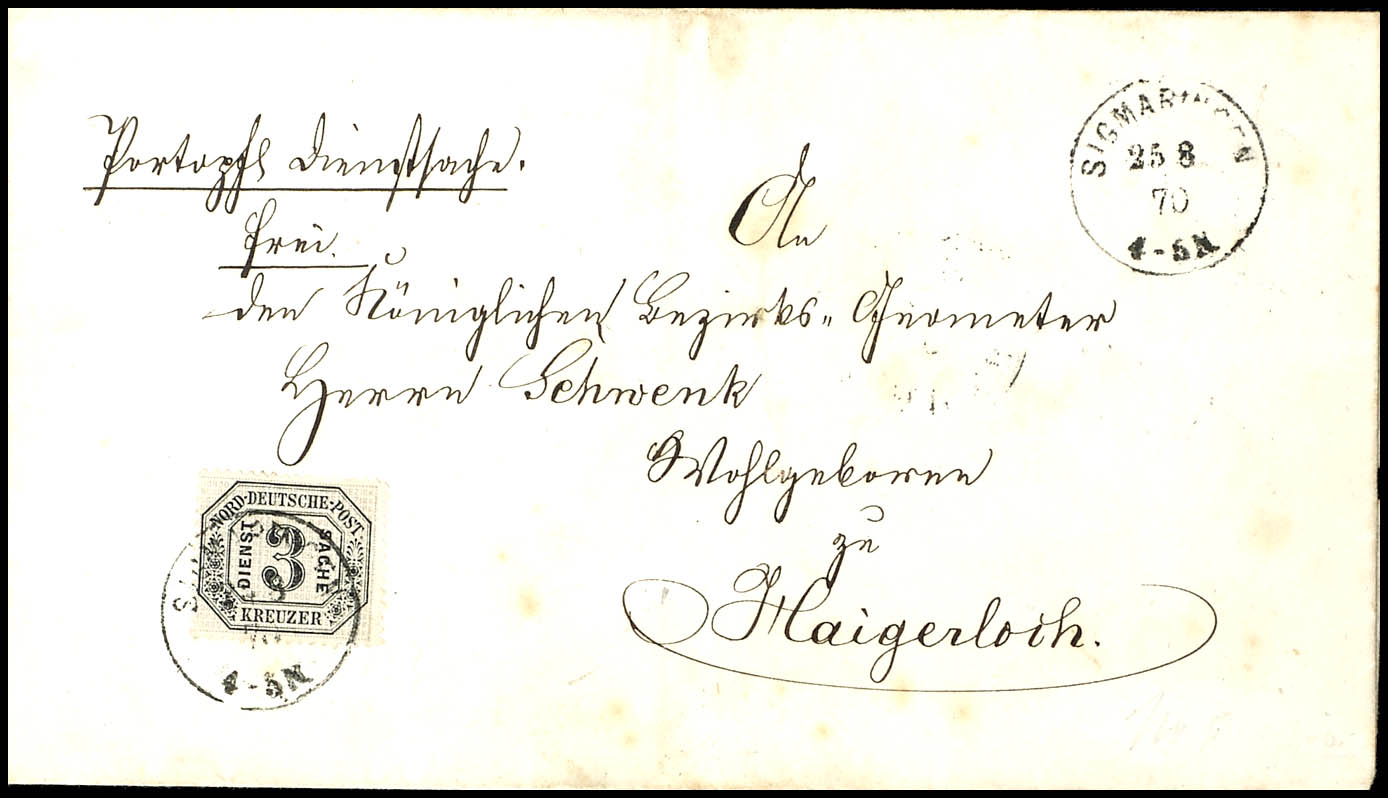 Portopfl Dienstsache.
frei.
SIGMARINGEN
25 8
70
4-5N
An
den Königlichen Bezirks-Geometer
Herrn Schwenk
Wohlgeboren
zu
Haigerloch.
NORD-DEUTSCHE-POST
DIENST SACHE
3
KREUZER
4-5N